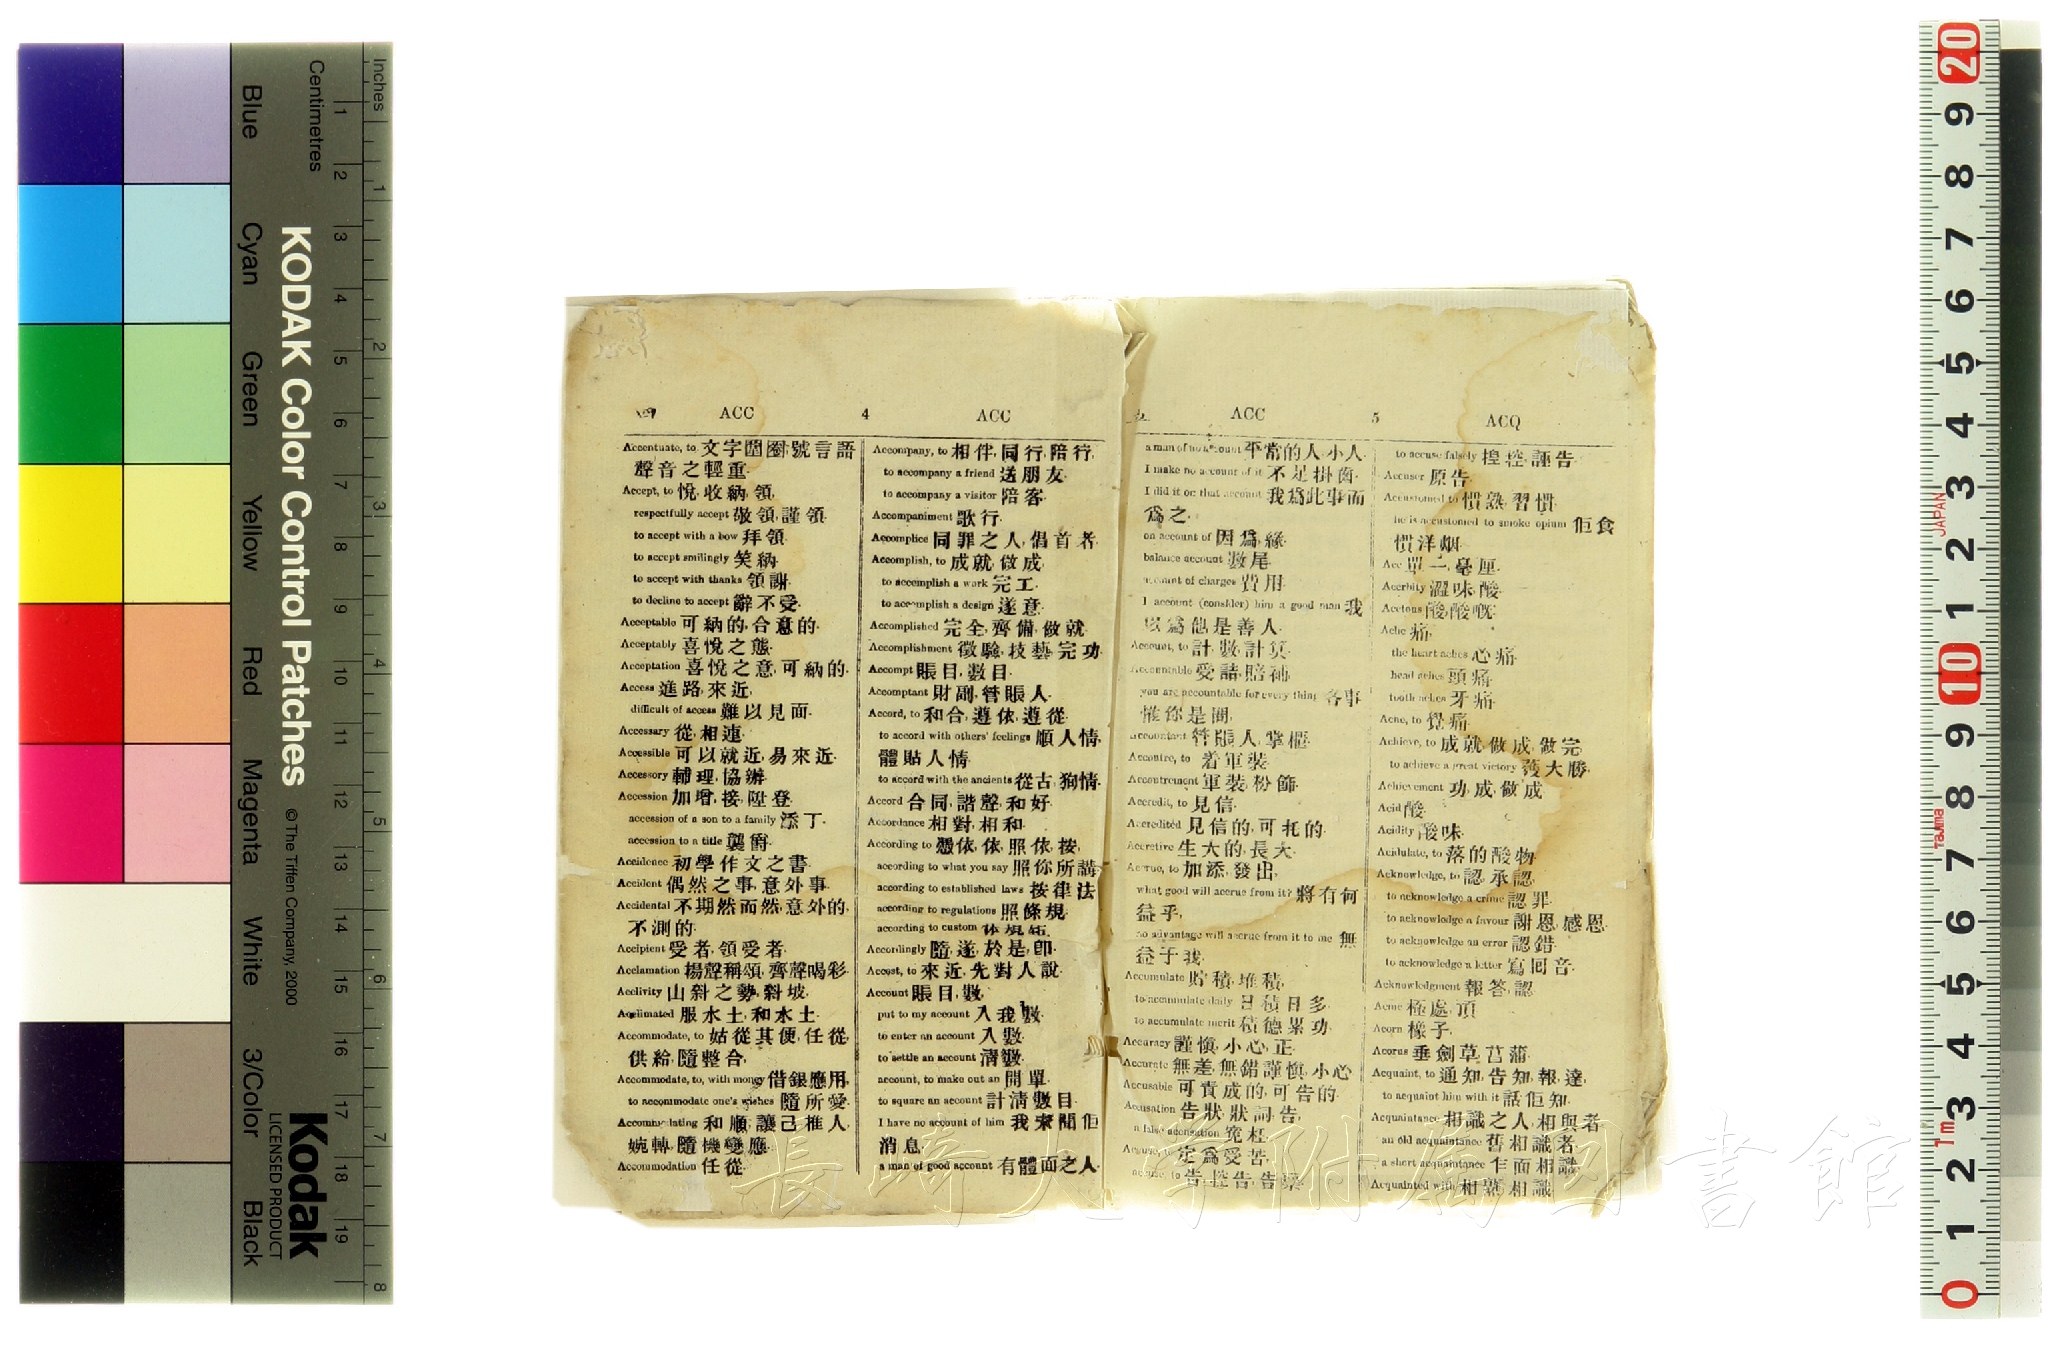 Inches
Centimetres
1 2 3 4 5 6 7 8 9 10 11 12 13 14 15 16 17 18 19
1 2 3 4 5 6 7 8
KODAK Color Control Patches © The Tiffen Company, 2000 Kodak
LICENSED PRODUCT
Blue Cyan Green Yellow Red Magenta White 3/Color Black
ACC 4 ACC
Accentuate, to 文字圈圈, 號言語
聲音之輕重.
Accept, to 悅, 收納, 領,
respectfully accept 敬領, 謹領.
to accept with a bow 拜領.
to accept smilingly 笑納.
to accept with thanks 領謝.
to decline to accept 辭不受.
Acceptable 可納的, 合意的.
Acceptably 喜悅之態.
Acceptation 喜悅之意, 可納的.
Access 進路, 來近,
difficult of access 難以見面.
Accessary 從, 相連.
Accessible 可以就近, 易來近.
Accessory 輔理, 協辦.
Accession 加增, 接, 陞登.
accession of a son to a family 添丁.
accession to a title 襲爵.
Accidence 初學作文之書.
Accident 偶然之事, 意外事.
Accidental 不期然而然, 意外的,
不測的.
Accipient 受者, 領受者.
Acclamation 楊聲稱頌, 齊聲喝彩.
Acclivity 山斜之勢, 斜坡.
Acclimated 服水土, 和水土.
Accommodate, to 姑從其便, 任從,
供給, 隨整合,
Accommodate, to, with money 借銀應用,
to accommodate one's wishes 隨所愛.
Accommodating 和順, 讓己推人,
婉轉, 隨機變應.
Accommodation 任從.
Accompany, to 相伴, 同行, 陪行,
to accompany a friend 送朋友.
to accompany a visitor 陪客.
Accompaniment 歌行.
Accomplice 同罪之人, 倡首者.
Accomplish, to 成就, 做成.
to accomplish a work 完工.
to accomplish a design 遂意.
Accomplished 完全, 齊備, 做就.
Accomplishment 徵驗, 技藝, 完功.
Accompt 賬目, 數目.
Accomptant 財副, 管賬人.
Accord, to 和合, 遵依, 遵從.
to accord with others' feelings 順人情,
體貼人情.
to accord with the ancients 從古, 狥情.
Accord 合同, 諧聲, 和好.
Accordance 相對, 相和.
According to 憑依, 依, 照依, 按,
according to what you say 照你所講
according to established laws 按律法
according to regulations 照條規.
according to custom 依規矩.
Accordingly 隨, 遂, 於是, 卽.
Accost, to 來近, 先對人說.
Account 賬目, 數,
put to my account 入我數.
to enter an account 入數.
to settle an account 淸數.
account, to make out an 開單.
to square an account 計淸數目.
I have no account of him 我未聞佢
消息.
a man of good account 有體面之人.
ACC 5 ACQ
a man of no account 平常的人, 小人.
I make no account of it 不足掛齒.
I did it on that account 我爲此事而
爲之.
on account of 因爲, 緣.
balance account 數尾.
account of charges 費用.
I account (consider) him a good man 我
以爲他是善人.
Account, to 計, 數, 計算.
Accountable 受詰, 賠補,
you are accountable for every thing 各事
惟你是問,
Accountant 管賬人, 掌櫃.
Accoutre, to 着軍裝.
Accoutrement 軍裝, 粉飾.
Accredit, to 見信.
Accredited 見信的, 可托的.
Accretive 生大的, 長大.
Accrue, to 加添, 發出,
what good will accrue from it? 將有何
益乎,
no advantage will accrue from it to me 無
益于我.
Accumulate 貯積, 堆積,
to accumulate daily 日積日多.
to accumulate merit 積德累功.
Accuracy 謹愼, 小心, 正.
Accurate 無差, 無錯, 謹愼, 小心
Accusable 可責成的, 可告的.
Accusation 告狀, 狀詞, 告,
a false accusation 寃枉.
Accuse, to 定爲受苦.
accuse, to 告, 控告, 告案.
to accuse falsely 揑控, 誣告.
Accuser 原告.
Accustomed to 慣熟, 習慣.
he is accustomed to smoke opium 佢食
慣洋烟.
Ace 單一, 毫厘.
Acerbity 澀味, 酸.
Acetous 酸, 酸嘅.
Ache 痛,
the heart aches 心痛.
head aches 頭痛.
tooth aches 牙痛.
Ache, to 覺痛.
Achieve, to 成就, 做成, 做完.
to achieve a great victory 獲大勝.
Achievement 功成, 做成
Acid 酸.
Acidity 酸味.
Acidulate, to 落的酸物.
Acknowledge, to 認, 承認,
to acknowledge a crime 認罪.
to acknowledge a favour 謝恩, 感恩.
to acknowledge an error 認錯.
to acknowledge a letter 寫囘音.
Acknowledgment 報答, 認.
Acme 極處, 頂
Acorn 橡子,
Acorus 垂劍草, 菖蒲.
Acquaint, to 通知, 告知, 報, 達,
to acquaint him with it 話佢知.
Acquaintance 相識之人, 相與者
an old acquaintance 舊相識者.
a short acquaintance 乍面相識
Acquainted with 相熟, 相識
長崎大学附属図書館
20 9 8 7 6 5 4 3 2 1 10 9 8 7 6 5 4 3 2 1 0
JAPAN
Tajima
1m